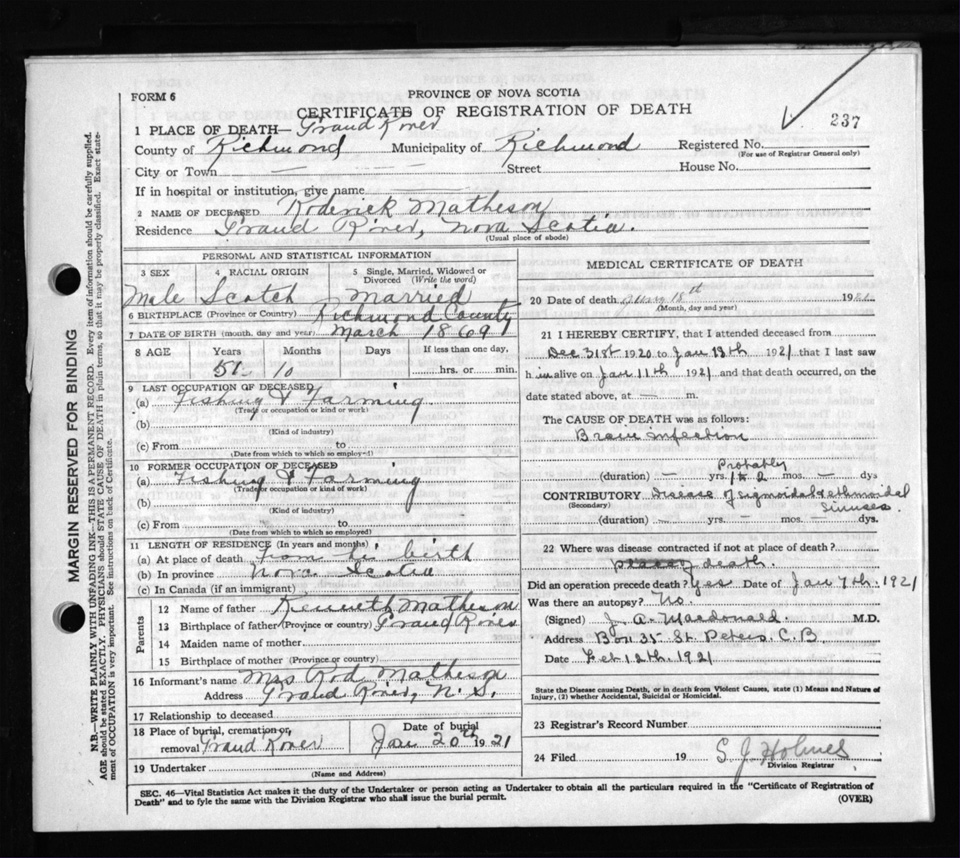 FORM 6
PROVINCE OF NOVA SCOTIA
CERTIFICATE OF REGISTRATION OF DEATH
237
1 PLACE OF DEATH— Grand River
County of Richmond Municipality of Richmond Registered No.
(For use of Registrar General only)
City or Town Street House No.
If in hospital or institution, give name
2 NAME OF DECEASED Roderick Matheson
Residence Grand River, Nova Scotia.
(Usual place of abode)
PERSONAL AND STATISTICAL INFORMATION
3 SEX 4 RACIAL ORIGIN 5 Single, Married, Widowed or Divorced (Write the word)
Male Scotch Married
6 BIRTHPLACE (Province or Country) Richmond County
7 DATE OF BIRTH (month, day and year) March 1869
8 AGE Years Months Days If less than one day,
51 10 hrs. or min.
9 LAST OCCUPATION OF DECEASED
(a) Fishing & Farming
(Trade or occupation or kind of work)
(b)
(Kind of industry)
(c) From to
(Date from which to which so employed)
10 FORMER OCCUPATION OF DECEASED
(a) Fishing & Farming
(Trade or occupation or kind of work)
(b)
(Kind of industry)
(c) From to
(Dates from which to which so employed)
11 LENGTH OF RESIDENCE (In years and months)
(a) At place of death From his birth
(b) In province Nova Scotia
(c) In Canada (if an immigrant)
Parents
12 Name of father Kenneth Matheson
13 Birthplace of father (Province or country) Grand River
14 Maiden name of mother
15 Birthplace of mother (Province or country)
16 Informant's name Mrs Rod Matheson
Address Grand River, N. S.
17 Relationship to deceased
18 Place of burial, cremation, or removal Grand River Date of burial Jan 20th 1921
19 Undertaker
(Name and Address)
MEDICAL CERTIFICATE OF DEATH
20 Date of death 18th 192
(Month, day and year)
21 I HEREBY CERTIFY, that I attended deceased from
Dec 31st 1920 to Jan 13th 1921 that I last saw
h im alive on Jan 11th 1921 and that death occurred, on the
date stated above, at — m.
The CAUSE OF DEATH was as follows:
Brain infection
Probably
(duration) — yrs. 1 to 2 mos. — dys
CONTRIBUTORY Disease of sigmoidal & ethmoidal
(Secondary) sinuses.
(duration) — yrs. — mos. — dys.
22 Where was disease contracted if not at place of death?
place of death.
Did an operation precede death? Yes Date of Jan 7th. 1921
Was there an autopsy? No.
(Signed) J. A. Macdonald. M.D.
Address Box 35 St. Peters, C.B
Date Feb 12th 1921
State the Disease causing Death, or in death from Violent Causes, state (1) Means and Nature of
Injury, (2) whether Accidental, Suicidal or Homicidal.
23 Registrar's Record Number
24 Filed 19 S. J. Holmes
Division Registrar
SEC. 46—Vital Statistics Act makes it the duty of the Undertaker or person acting as Undertaker to obtain all the particulars required in the "Certificate of Registration of
Death" and to fyle the same with the Division Registrar who shall issue the burial permit.
(OVER)
MARGIN RESERVED FOR BINDING
N.B.—WRITE PLAINLY WITH UNFADING INK—THIS IS A PERMANENT RECORD. Every item of information should be carefully supplied.
AGE should be stated EXACTLY. PHYSICIANS should STATE CAUSE OF DEATH in plain terms, so that it may be properly classified. Exact state-
ment of OCCUPATION is very important. See instructions on back of Certificate.